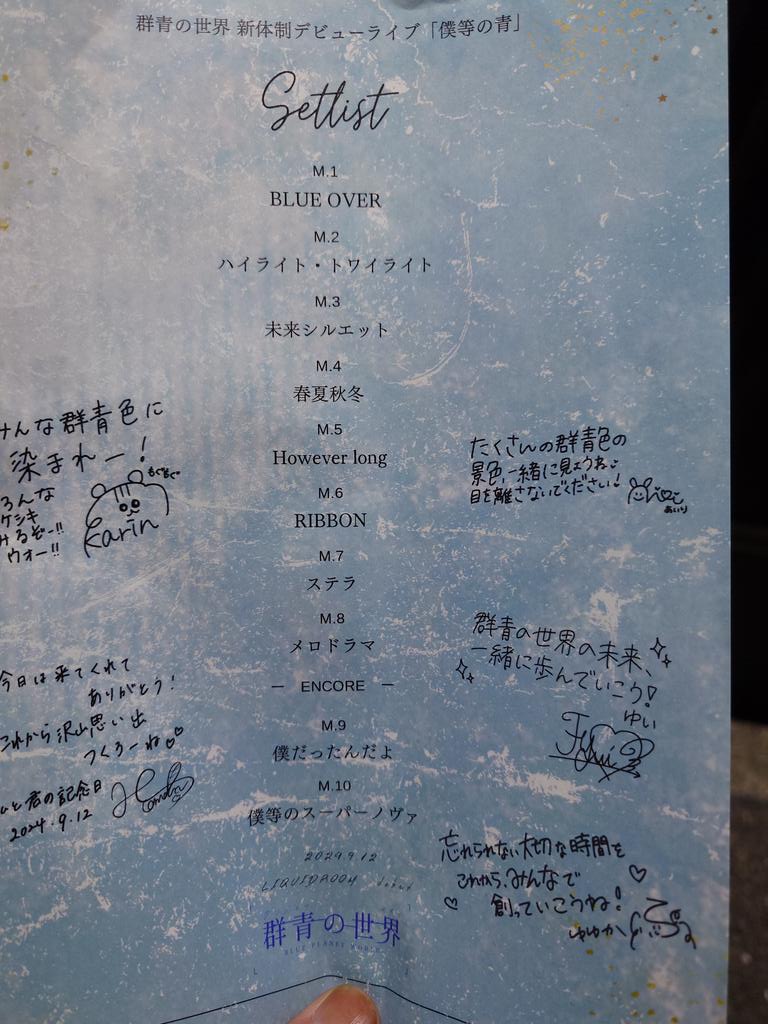 群青の世界 新体制デビューライブ「僕等の青」
Setlist
M.1
BLUE OVER
M.2
ハイライト・トワイライト
M.3
未来シルエット
M.4
春夏秋冬
M.5
However long
M.6
RIBBON
M.7
ステラ
M.8
メロドラマ
ー ENCORE ー
M.9
僕だったんだよ
M.10
僕等のスーパーノヴァ
2024.9.12
LIQUIDROOM debut
群青の世界
BLUE PLANET WORLD
んな群青色に
染まれー!
もぐもぐ
ろんな
ケシキ
みるぞー!!
ウォー!!
Karin
今日は来てくれて
ありがとう!
これから沢山思い出
つくろーね♡♡
と君の記念日
2024.9.12
たくさんの群青色の
景色、一緒に見ようね
目を離さないでください!
あいり
群青の世界の未来、
一緒に歩んでいこう!
ゆい
忘れられない大切な時間を
これから、みんなで
創っていこうね!
ゆゆか